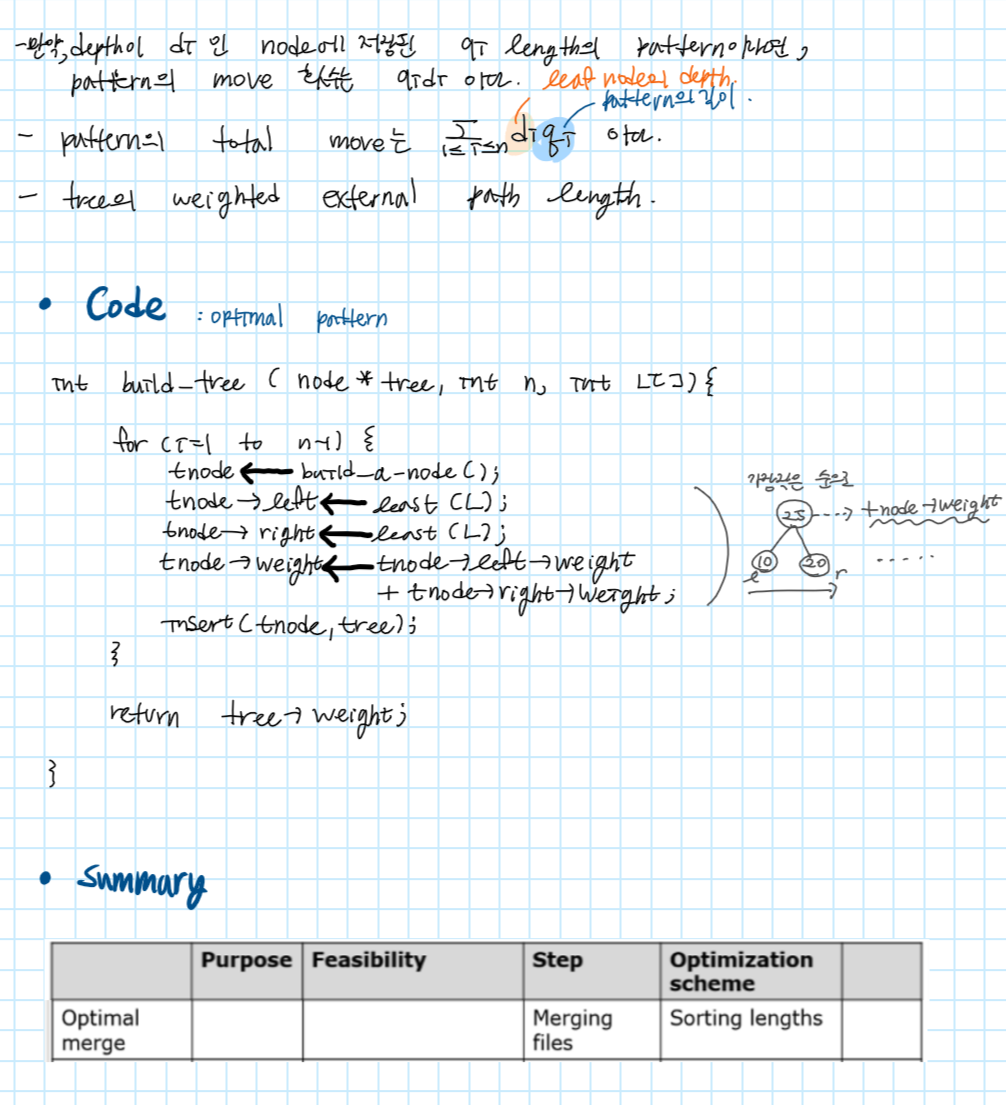 - 만약, depth이 di 인 node에 저장된 qi length의 pattern이라면,
pattern의 move 횟수는 qidi 이다.
leaf node의 depth.
pattern의 길이.
- pattern의 total move는 ∑ 1≤i≤n di qi 이다.
- tree의 weighted external path length.
• Code : optimal pattern
int build_tree ( node * tree, int n, int L[]) {
for (i=1 to n-1) {
tnode ← build_a-node();
tnode → left ← least (L);
tnode → right ← least (L);
tnode → weight ← tnode→left→weight
+ tnode→right→weight;
insert (tnode, tree);
}
return tree→ weight;
}
가장작은 순으로
25 ---> tnode→weight
10 20 .....
l r
• Summary
Purpose Feasibility Step Optimization scheme
Optimal merge Merging files Sorting lengths